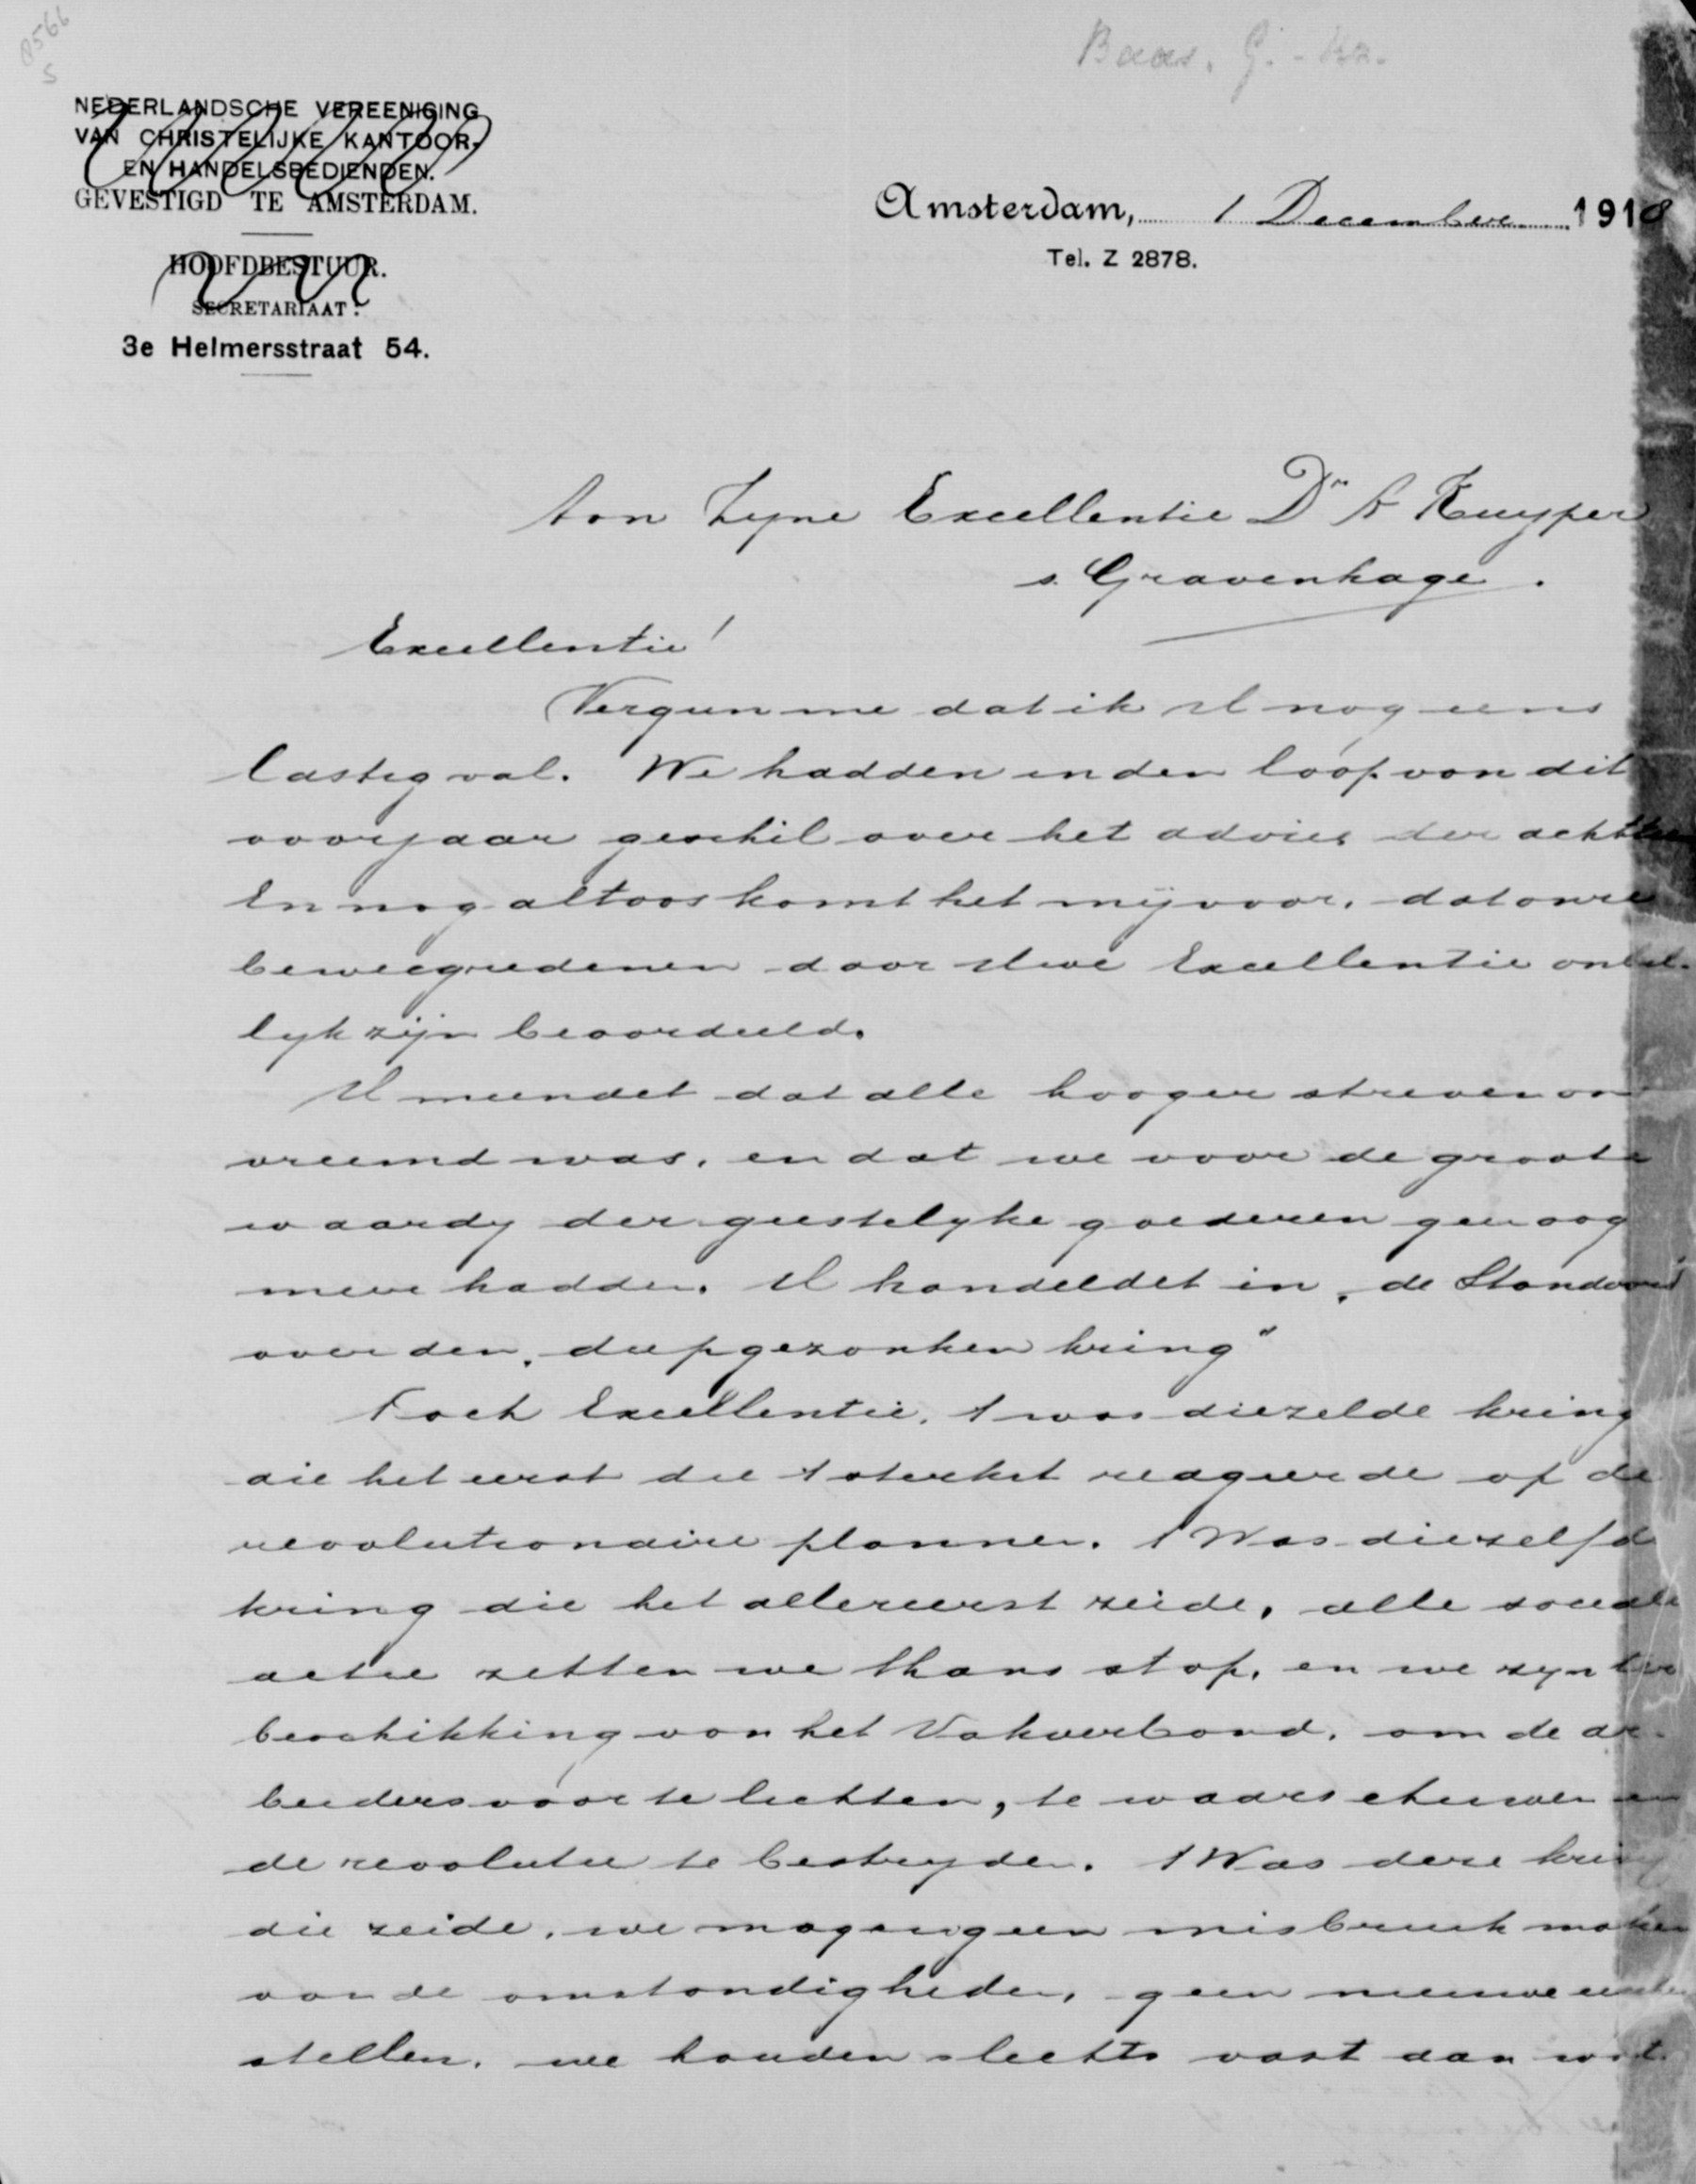 8566
S
Baas, G. - Kz.
NEDERLANDSCHE VEREENIGING
VAN CHRISTELIJKE KANTOOR-
EN HANDELSBEDIENDEN.
GEVESTIGD TE AMSTERDAM.
HOOFDBESTUUR.
SECRETARIAAT:
3e Helmersstraat 54.
Amsterdam, 1 December 1918
Tel. Z 2878.
Aan Zyne Excellentie Dr A Kuyper
s Gravenhage.
Excellentie!
Vergun me dat ik U nog eens
lastig val. We hadden in den loop van dit
voorjaar geschil over het advies der achttien
En nog altoos komt het mij voor, dat onze
beweegredenen door Uwe Excellentie onbil-
lyk zijn beoordeeld.
U meendet dat alle hooger streven ons
vreemd was, en dat we voor de groote
waardy der geestelyke goederen geen oog
meer hadden. U handeldet in "de Standaard"
over den "diepgezonken kring"
Toch Excellentie, 't was diezelde kring
die het eerst die 't sterkst reageerde op de
revolutionaire plannen. 't Was diezelfde
kring die het allereerst zeide, alle sociale
actie zetten we thans stop, en we zyn ter
beschikking van het Vakverbond, om de ar-
beiders voor te lichten, te waarschuwen en
de revolutie te bestryden. 't Was deze kring
die zeide, we mogen geen misbruik maken
van de omstandigheden, geen nieuwe eischen
stellen, we houden slechts vast aan wat